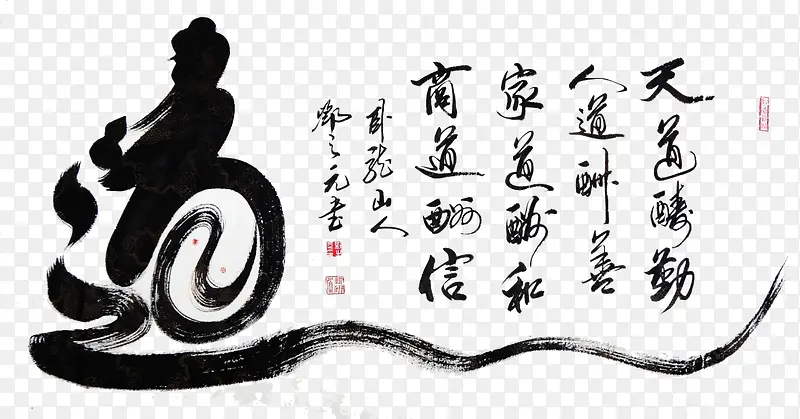 道
天道酬勤
人道酬善
家道酬和
商道酬信
卧龙山人